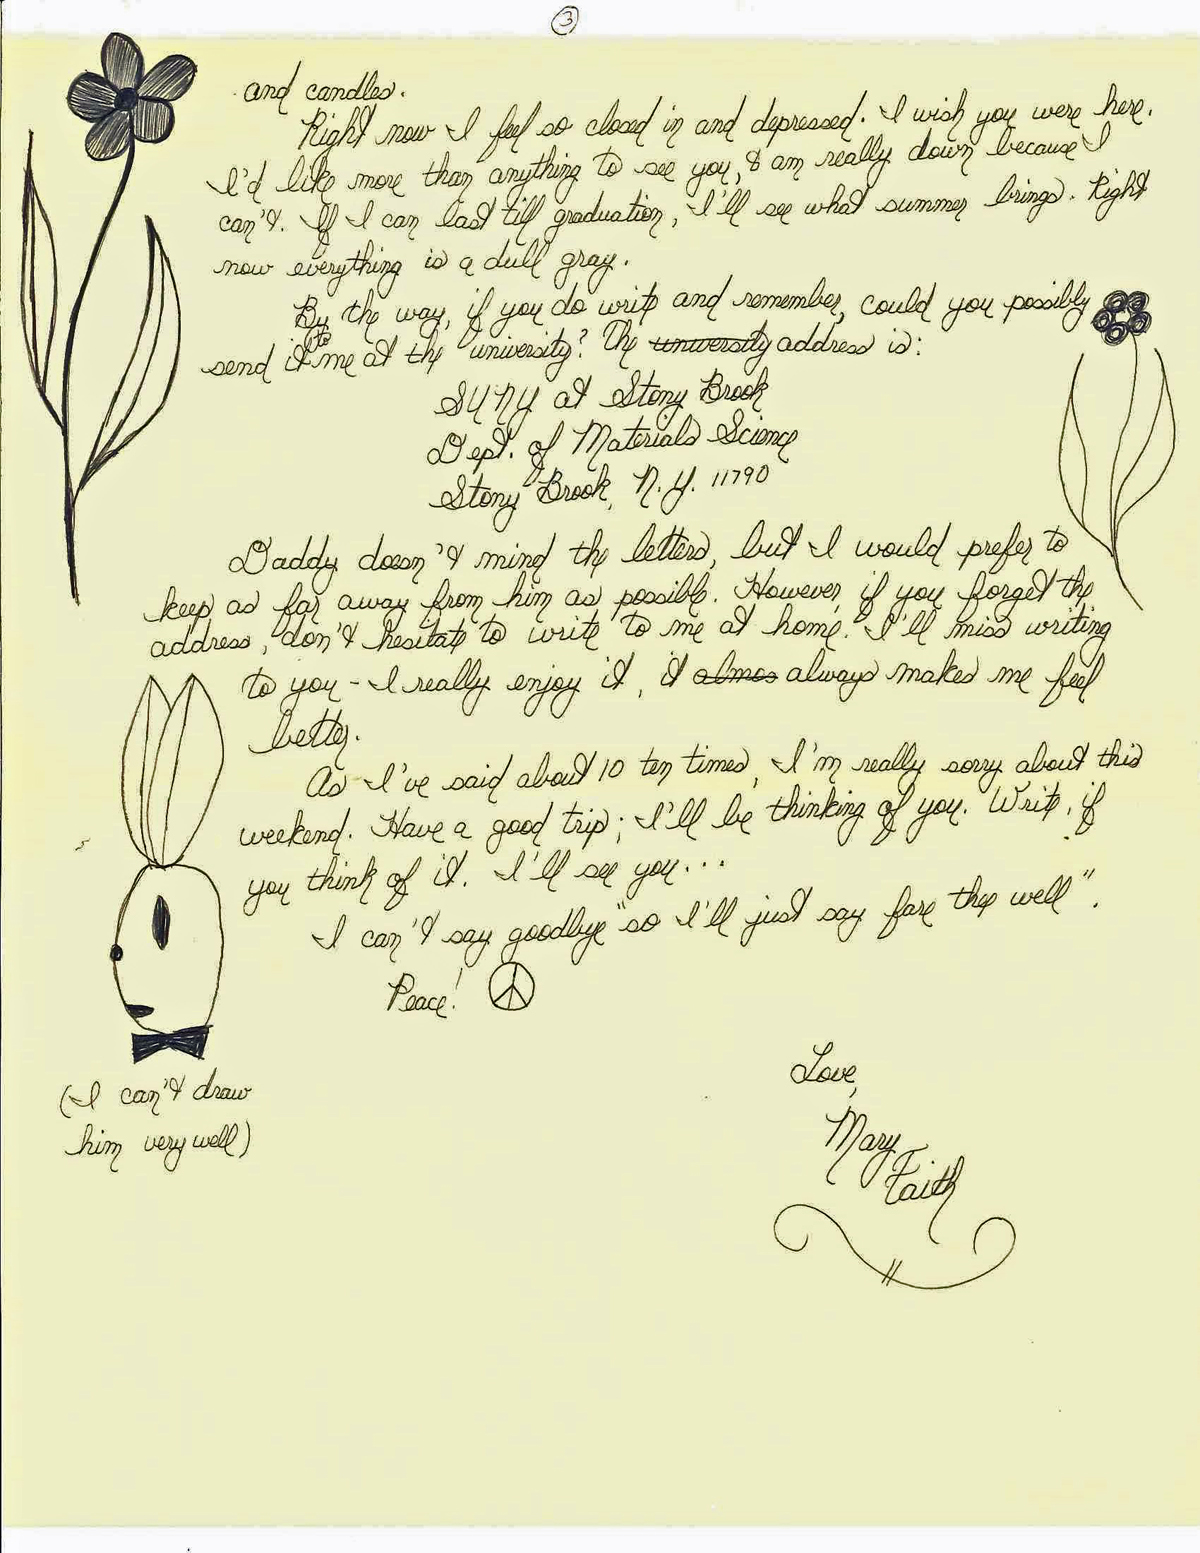 3
and candles.
Right now I feel so closed in and depressed. I wish you were here.
I'd like more than anything to see you, & am really down because I
can't. If I can last till graduation, I'll see what summer brings. Right
now everything is a dull gray.
By the way, if you do write and remember, could you possibly
send it to me at the university? The university address is:
SUNY at Stony Brook
Dept. of Materials Science
Stony Brook, N.Y. 11790
Daddy doesn't mind the letters, but I would prefer to
keep as far away from him as possible. However, if you forget the
address, don't hesitate to write to me at home. I'll miss writing
to you - I really enjoy it, it almos always makes me feel
better.
As I've said about 10 ten times, I'm really sorry about this
weekend. Have a good trip; I'll be thinking of you. Write, if
you think of it. I'll see you...
I can't say goodbye "so I'll just say fare thee well".
Peace!
Love,
Mary
Faith
(I can't draw
him very well)